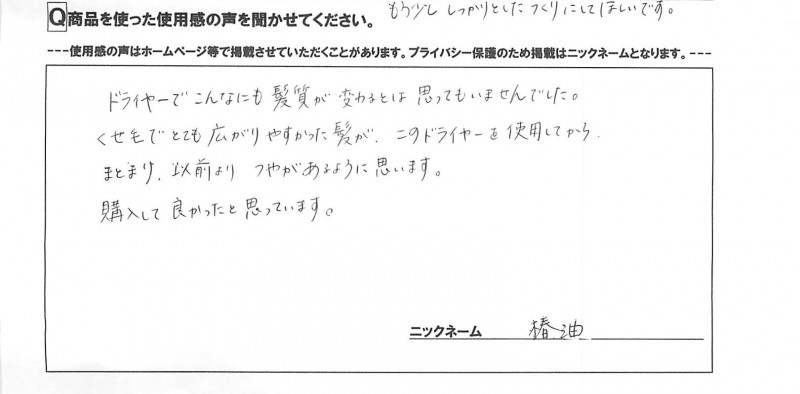 もう少ししっかりとしたつくりにしてほしいです。
Q商品を使った使用感の声を聞かせてください。
---使用感の声はホームページ等で掲載させていただくことがあります。プライバシー保護のため掲載はニックネームとなります。---
ドライヤーでこんなにも髪質が変わるとは思ってもいませんでした。
くせ毛でとても広がりやすかった髪が、このドライヤーを使用してから、
まとまり、以前よりつやがあるように思います。
購入して良かったと思っています。
ニックネーム 椿油